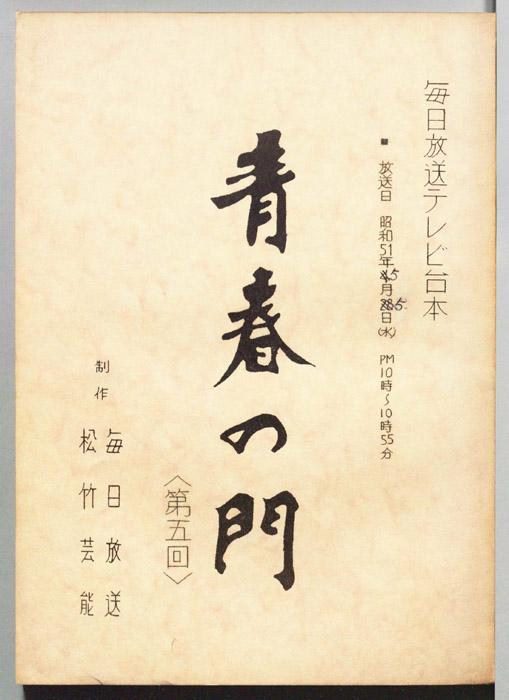 毎日放送テレビ台本
■ 放送日 昭和51年5月5日(水) PM10時～10時55分
青春の門
〈第五回〉
制作
毎日放送
松竹芸能